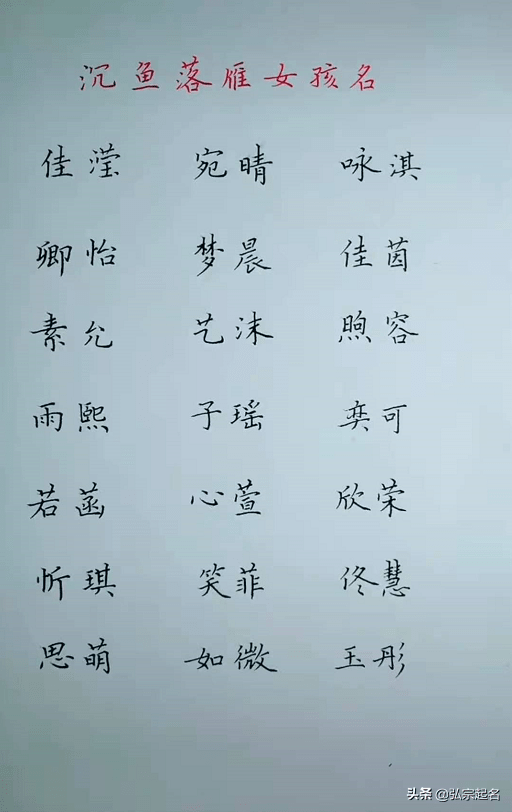 沉鱼落雁女孩名
佳滢 宛晴 咏淇
卿怡 梦晨 佳茵
素允 艺沫 煦容
雨熙 子瑶 奕可
若菡 心萱 欣荣
忻琪 笑菲 佟慧
思萌 如微 玉彤
头条 @弘宗起名